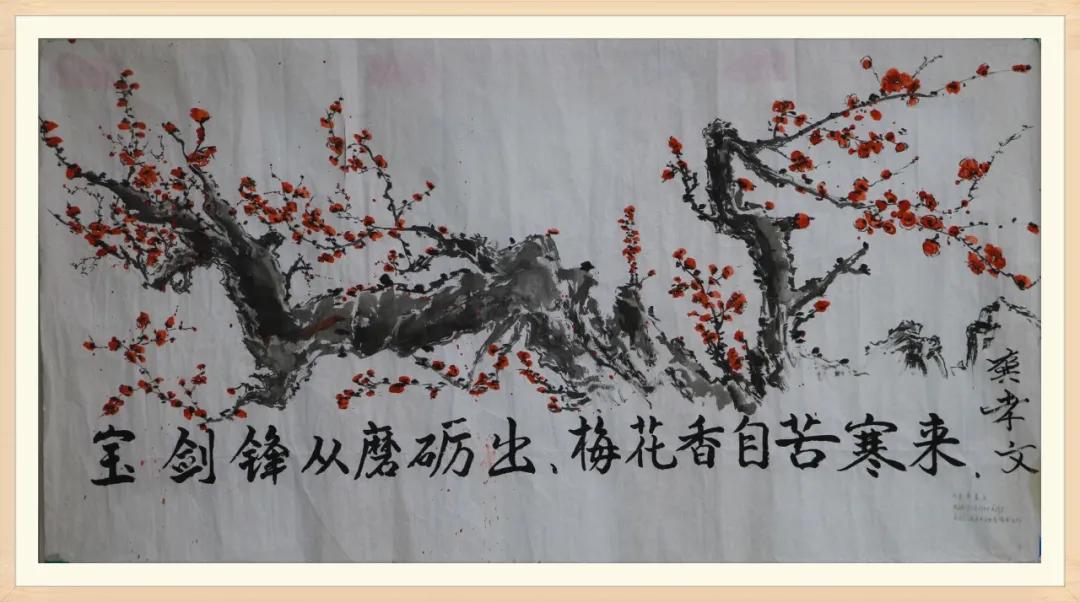 宝剑锋从磨砺出、梅花香自苦寒来.
龚孝文